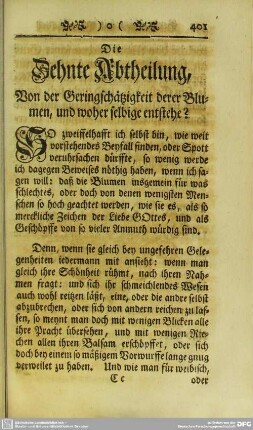 )o( 401
Die
Zehnte Abtheilung,
Von der Geringschätzigkeit derer Blu-
men, und woher selbige entstehe?
SO zweiffelhafft ich selbst bin, wie weit
vorstehendes Beyfall finden, oder Spott
veruhrsachen dürffte, so wenig werde
ich dagegen Beweises nöthig haben, wenn ich sa-
gen will: daß die Blumen insgemein für was
schlechtes, oder doch von denen wenigsten Men-
schen so hoch geachtet werden, wie sie es, als so
merckliche Zeichen der Liebe GOttes, und als
Geschöpffe von so vieler Anmuth würdig sind.
Denn, wenn sie gleich bey ungefehren Gele-
genheiten iedermann mit ansieht: wenn man
gleich ihre Schönheit rühmt, nach ihren Nah-
men fragt: und sich ihr schmeichlendes Wesen
auch wohl reitzen läßt, eine, oder die andre selbst
abzubrechen, oder sich von andern reichen zu las-
sen, so meynt man doch mit wenigen Blicken alle
ihre Pracht übersehen, und mit wenigen Rie-
chen allen ihren Balsam erschöpffet, oder sich
doch bey einem so mäßigem Vorwurffe lange gnug
verweilet zu haben. Und wie man für weibisch,
Cc oder
DFG